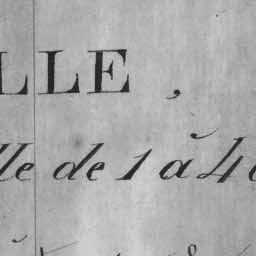 LLE,
lle de 1 à 4